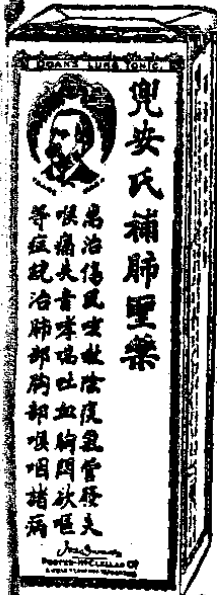 DOAN'S LUNG TONIC
兜安氏補肺聖藥
治傷風咳嗽陰痰氣管發炎
喉痛失音哮喘吐血胸悶欲嘔
等症統治肺部胸部喉咽諸病
FOSTER-McCLELLAN Co